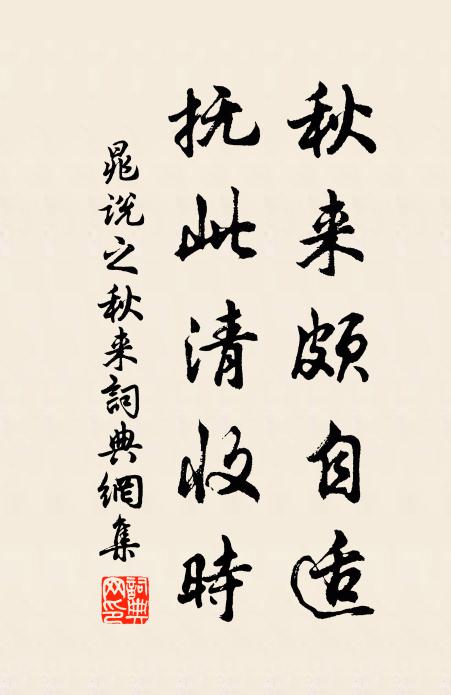 秋来頗自适
抚此清收時
晁说之秋来詞典網集
詞典网印